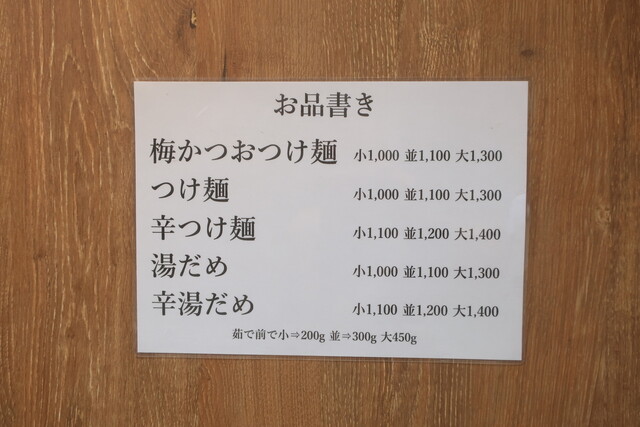 お品書き
梅かつおつけ麺 小1,000 並1,100 大1,300
つけ麺 小1,000 並1,100 大1,300
辛つけ麺 小1,100 並1,200 大1,400
湯だめ 小1,000 並1,100 大1,300
辛湯だめ 小1,100 並1,200 大1,400
茹で前で小⇒200g 並⇒300g 大450g